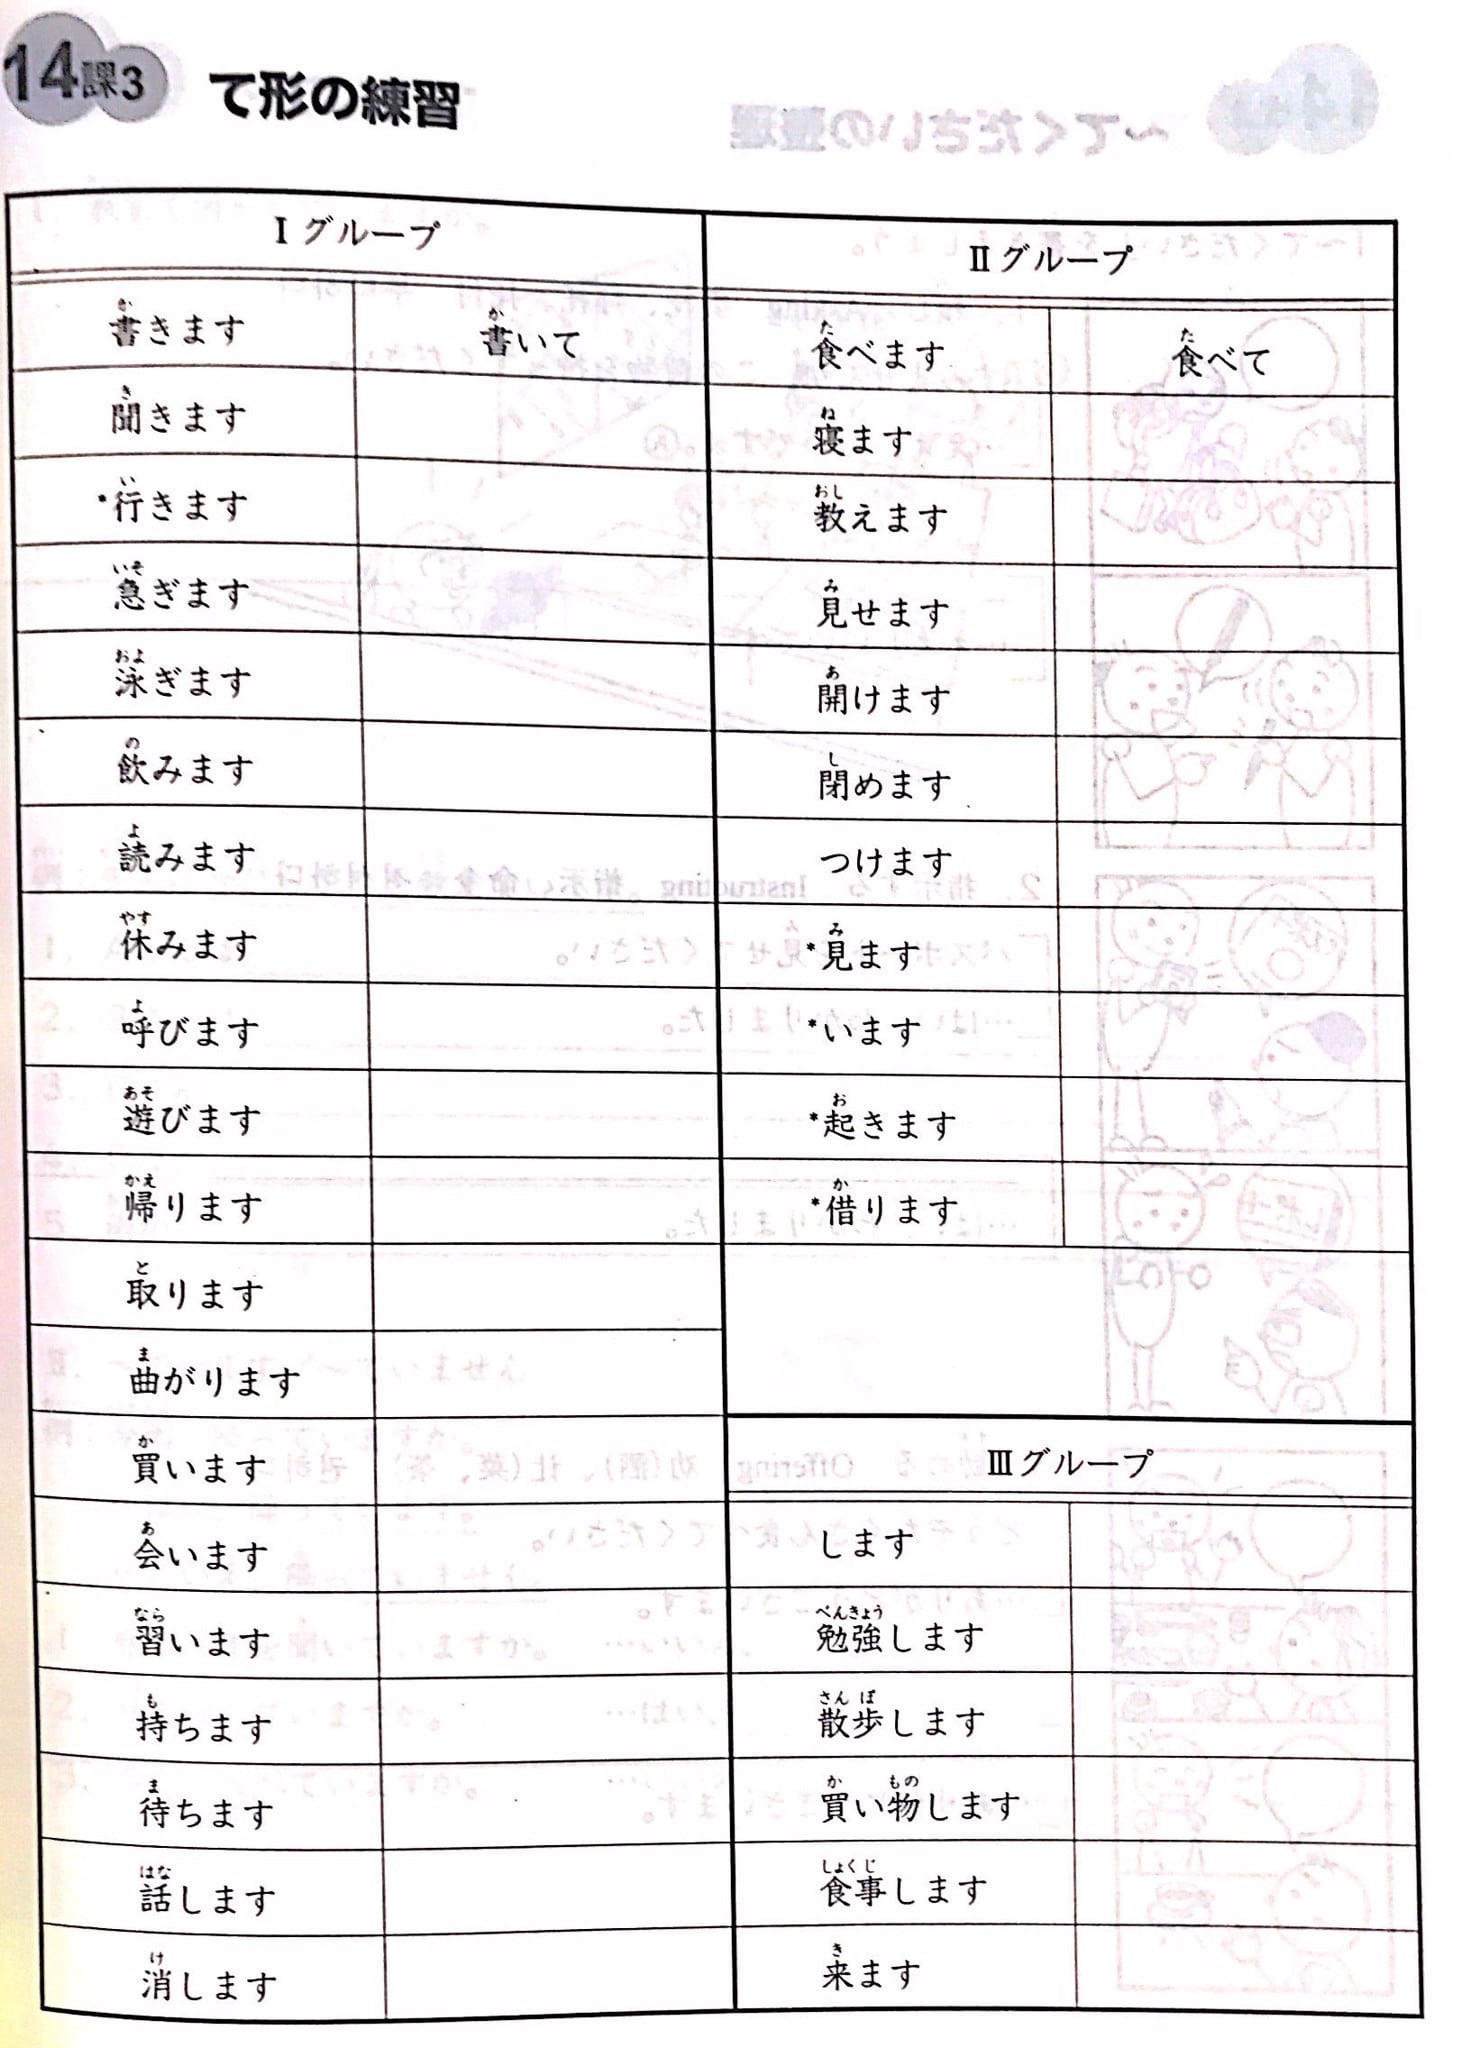 14課3 て形の練習
Ⅰグループ
書きます 書いて
聞きます
*行きます
急ぎます
泳ぎます
飲みます
読みます
休みます
呼びます
遊びます
帰ります
取ります
曲がります
買います
会います
習います
持ちます
待ちます
話します
消します
Ⅱグループ
食べます 食べて
寝ます
教えます
見せます
開けます
閉めます
つけます
*見ます
*います
*起きます
*借ります
Ⅲグループ
します
勉強します
散歩します
買い物します
食事します
来ます